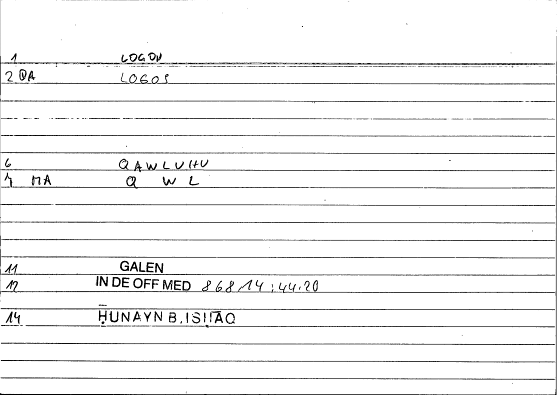 1 LOGOU
2 QA LOGOS
6 QAWLUHU
7 MA Q W L
11 GALEN
12 IN DE OFF MED 868/14 : 44.20
14 ḤUNAYN B.ISḤĀQ